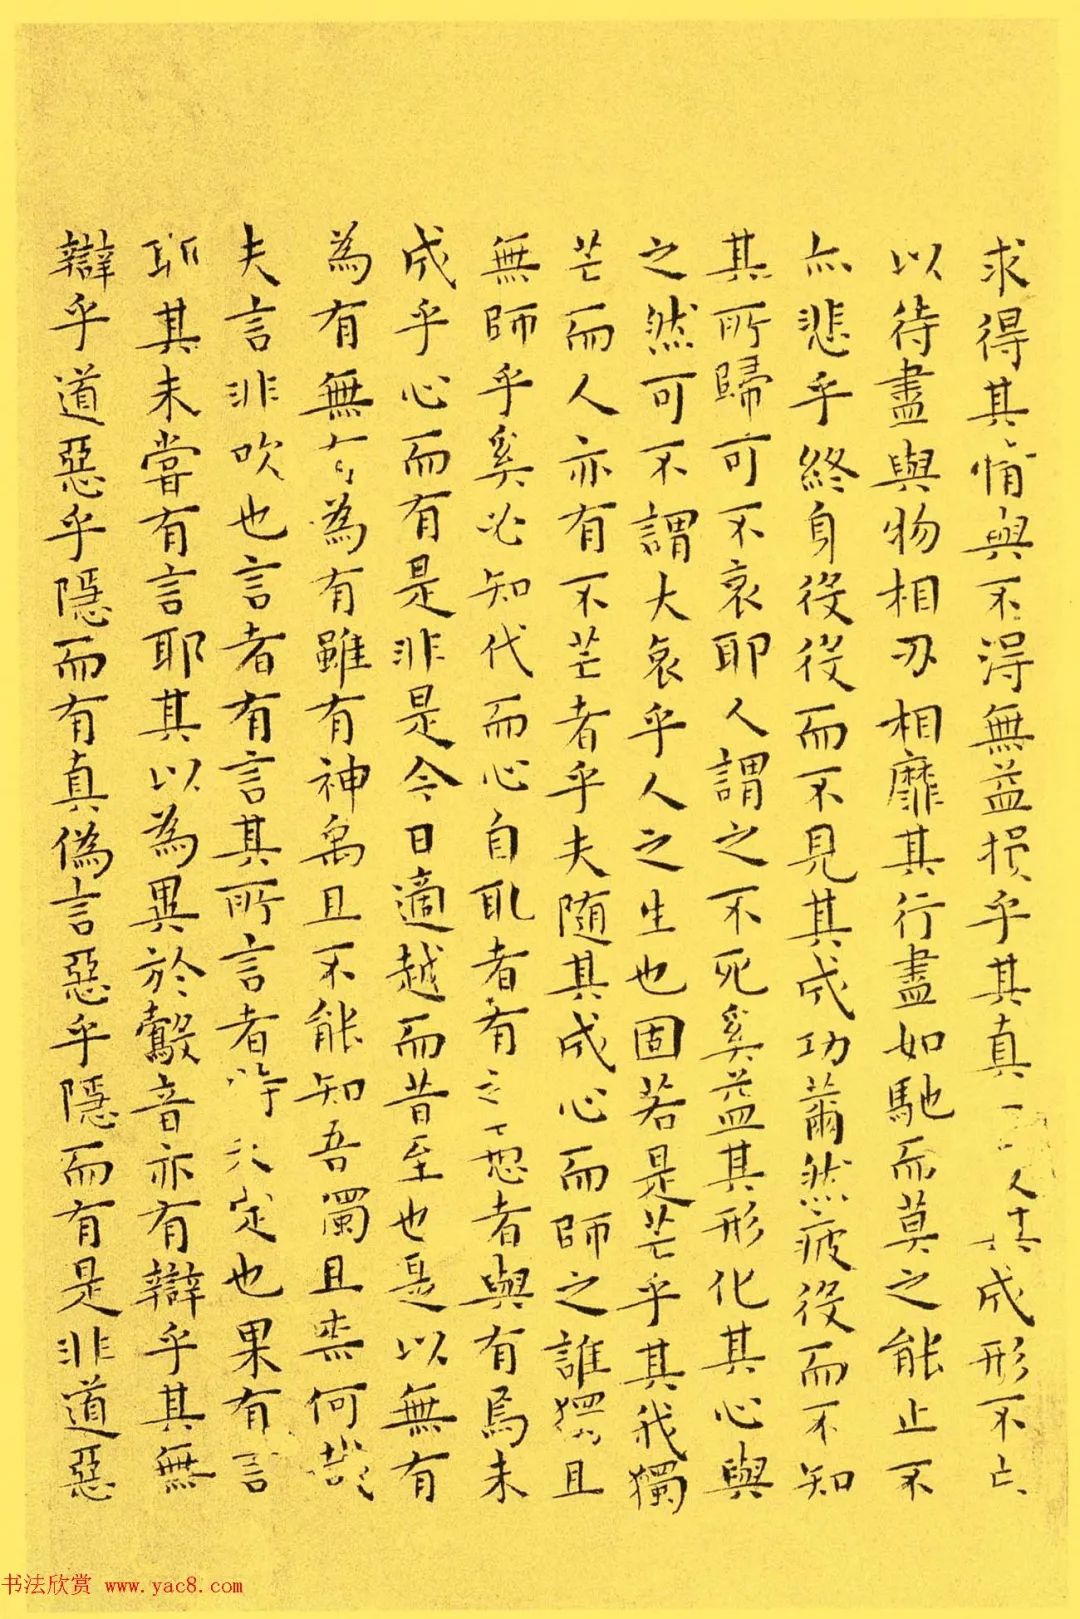 求得其情與不得無益損乎其真一人其成形不亡
以待盡與物相刃相靡其行盡如馳而莫之能止不
亦悲乎終身役役而不見其成功薾然疲役而不知
其所歸可不哀耶人謂之不死奚益其形化其心與
之然可不謂大哀乎人之生也固若是芒乎其我獨
芒而人亦有不芒者乎夫随其成心而師之誰獨且
無師乎奚必知代而心自取者有之愚者與有焉未
成乎心而有是非是今日適越而昔至也是以無有
為有無有為有雖有神禹且不能知吾獨且柰何哉
夫言非吹也言者有言其所言者特未定也果有言
耶其未嘗有言耶其以為異於鷇音亦有辯乎其無
辯乎道惡乎隱而有真偽言惡乎隱而有是非道惡
书法欣赏 www.yac8.com